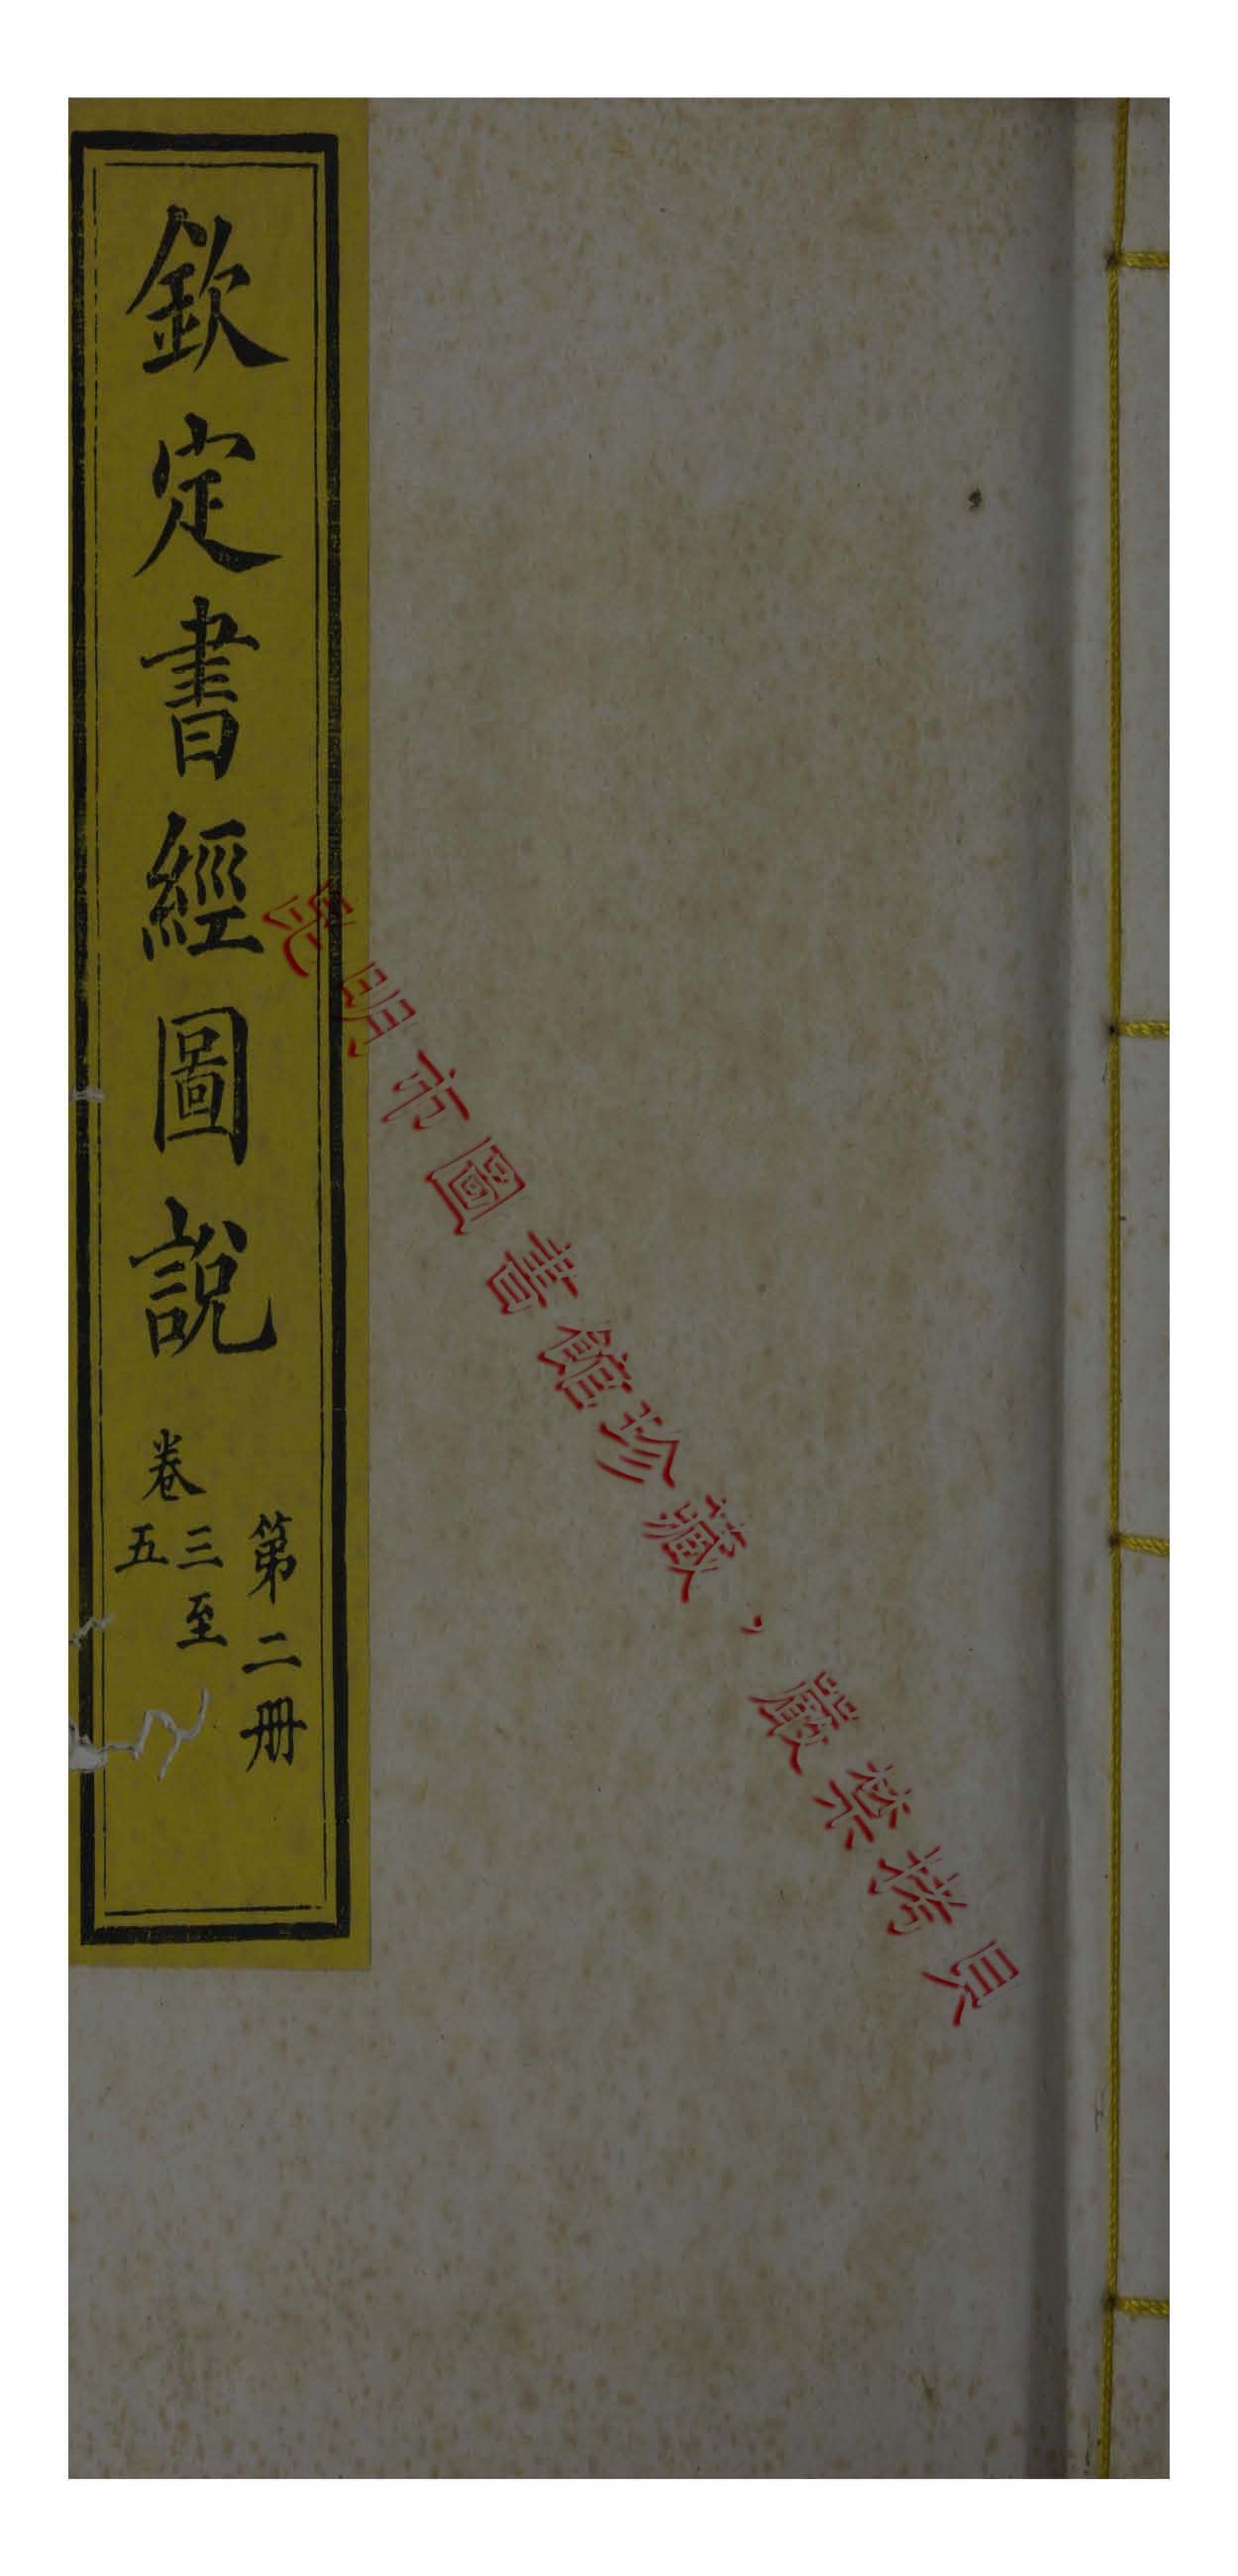 欽定書經圖說
第二册
卷三至
五
昆明市圖書館珍藏，嚴禁拷貝